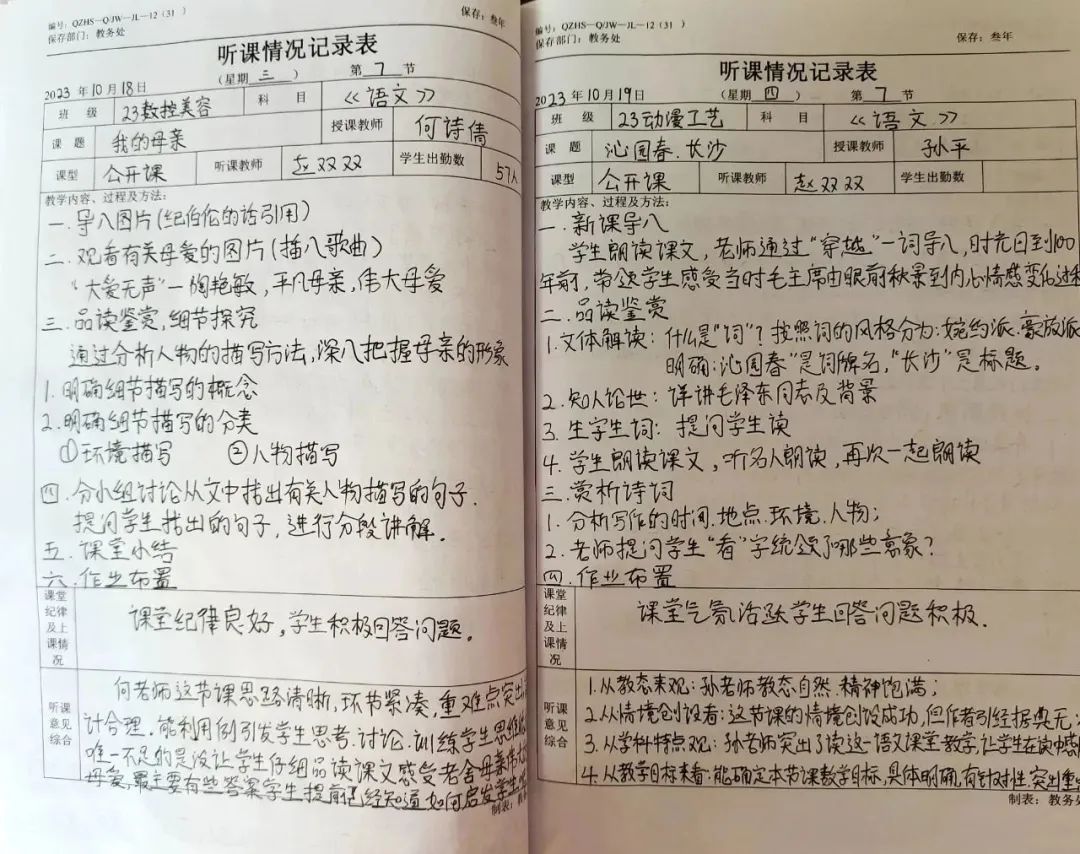 编号：QZHS—Q/JW—JL—12（31 ）
保存部门：教务处
保存：叁年
听课情况记录表
2023 年 10 月 18 日 （星期 三 ） 第 7 节
班 级 23数控美容 科 目 《语文》
课 题 我的母亲 授课教师 何诗倩
课型 公开课 听课教师 赵双双 学生出勤数 57人
教学内容、过程及方法：
一.导入图片(纪伯伦的话引用)
二.观看有关母爱的图片(插入歌曲)
"大爱无声"—陶艳敏,平凡母亲,伟大母爱
三.品读鉴赏,细节探究
通过分析人物的描写方法,深入把握母亲的形象
1.明确细节描写的概念
2.明确细节描写的分类
①环境描写 ②人物描写
四.分小组讨论从文中找出有关人物描写的句子.
提问学生找出的句子,进行分段讲解.
五.课堂小结
六.作业布置
课堂纪律及上课情况
课堂纪律良好,学生积极回答问题。
听课意见综合
何老师这节课思路清晰,环节紧凑,重难点突出
计合理.能利用例引发学生思考.讨论.训练学生思维
唯一不足的是没让学生仔细品读课文感受老舍母亲伟大
母爱,最主要有些答案学生提前已经知道如何启发学生
制表：
编号：QZHS—Q/JW—JL—12（31 ）
保存部门：教务处
保存：叁年
听课情况记录表
2023 年 10 月 19 日 （星期 四 ） 第 7 节
班 级 23动漫工艺 科 目 《语文》
课 题 沁园春.长沙 授课教师 孙平
课型 公开课 听课教师 赵双双 学生出勤数
教学内容、过程及方法：
一.新课导入
学生朗读课文,老师通过"穿越"一词导入,时光回到100
年前,带领学生感受当时毛主席由眼前秋景到内心情感变化过程
二.品读鉴赏
1.文体解读：什么是"词"？按照词的风格分为:婉约派.豪放派
明确:沁园春"是词牌名,"长沙"是标题。
2.知人论世：详讲毛泽东同志及背景
3.生字生词：提问学生读
4.学生朗读课文,听名人朗读,再次一起朗读
三.赏析诗词
1.分析写作的时间.地点.环境.人物;
2.老师提问学生"看"字统领了哪些意象?
四.作业布置
课堂纪律及上课情况
课堂气氛活跃学生回答问题积极.
听课意见综合
1.从教态来观:孙老师教态自然.精神饱满;
2.从情境创设看:这节课的情境创设成功,但作者引经据典无
3.从学科特点观:孙老师突出了读这一语文课堂教学,让学生在读中感
4.从教学目标来看:能确定本节课教学目标,具体明确,有针对性.突出重
制表：教务处